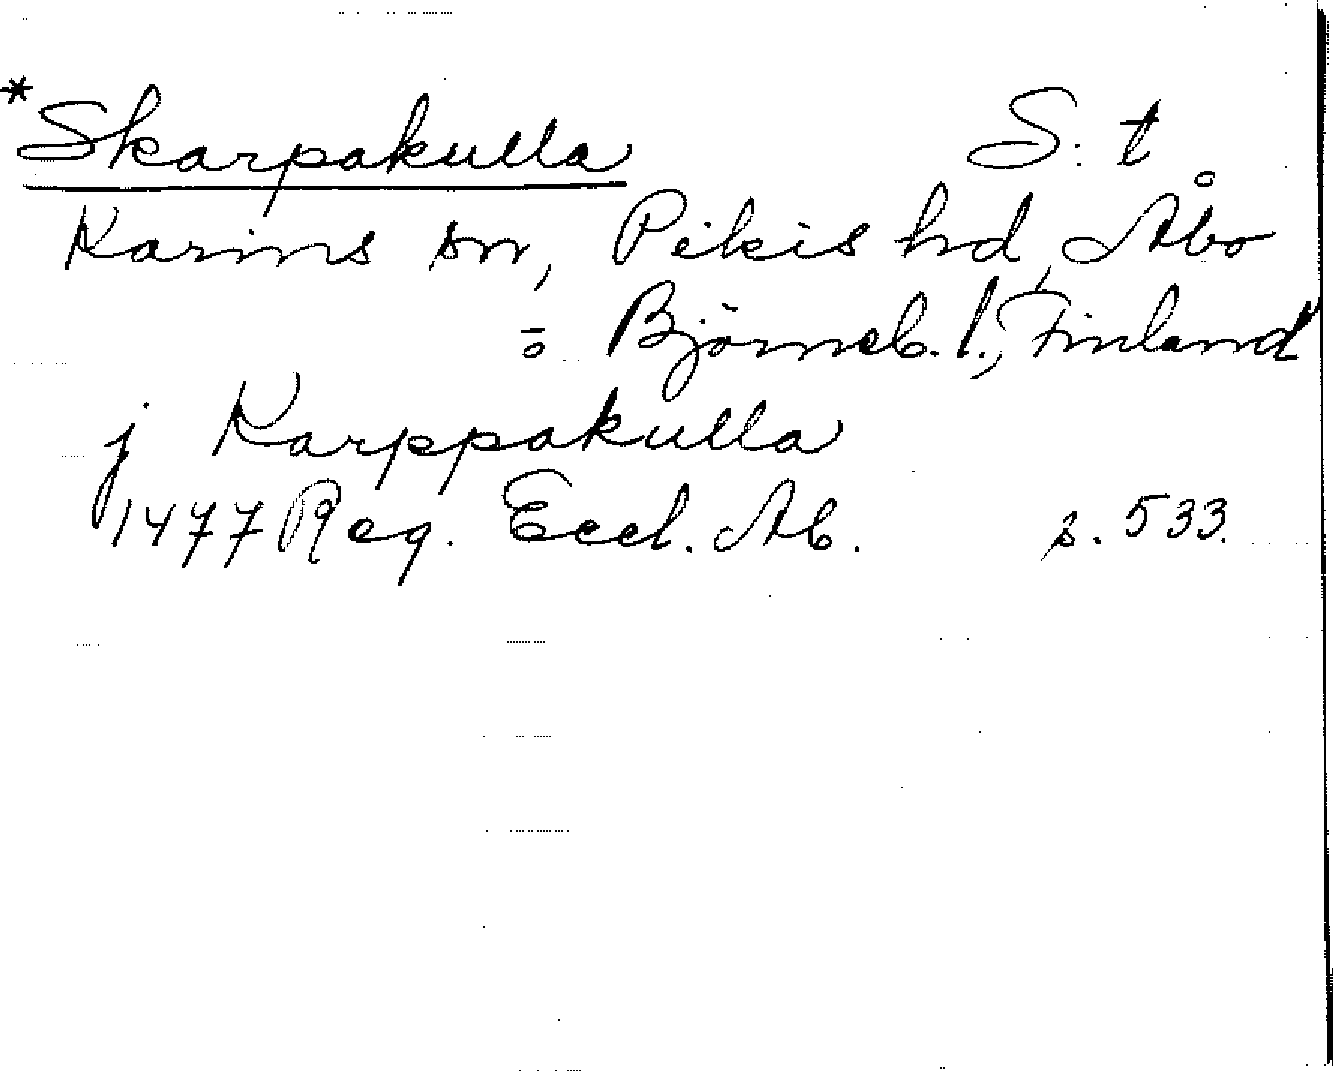 *Skarpakulla S. t
Karins sn, Pikis hd, Åbo
o Björneb. l., Finland
j Karppakulla
1477 Reg. Eccl. Ab. s. 533.